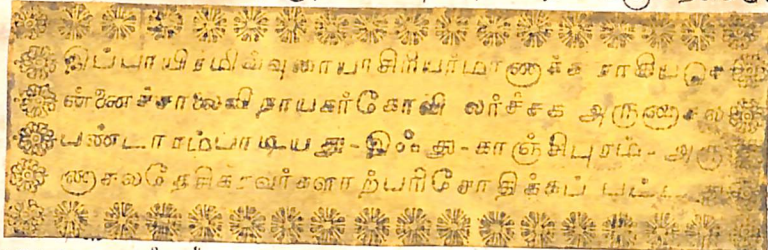 இப்பாயிரமிவ்வுரையாசிரியர்மாணாக்க ராகியபு
ன்னைச்சாலைவிநாயகர்கோவி லர்ச்சக அருணாசல
பண்டாரம்பாடியது-இஃது-காஞ்சிபுரம்-அரு
ணாசலதேசிகரவர்களாற்பரிசோதிக்கப்